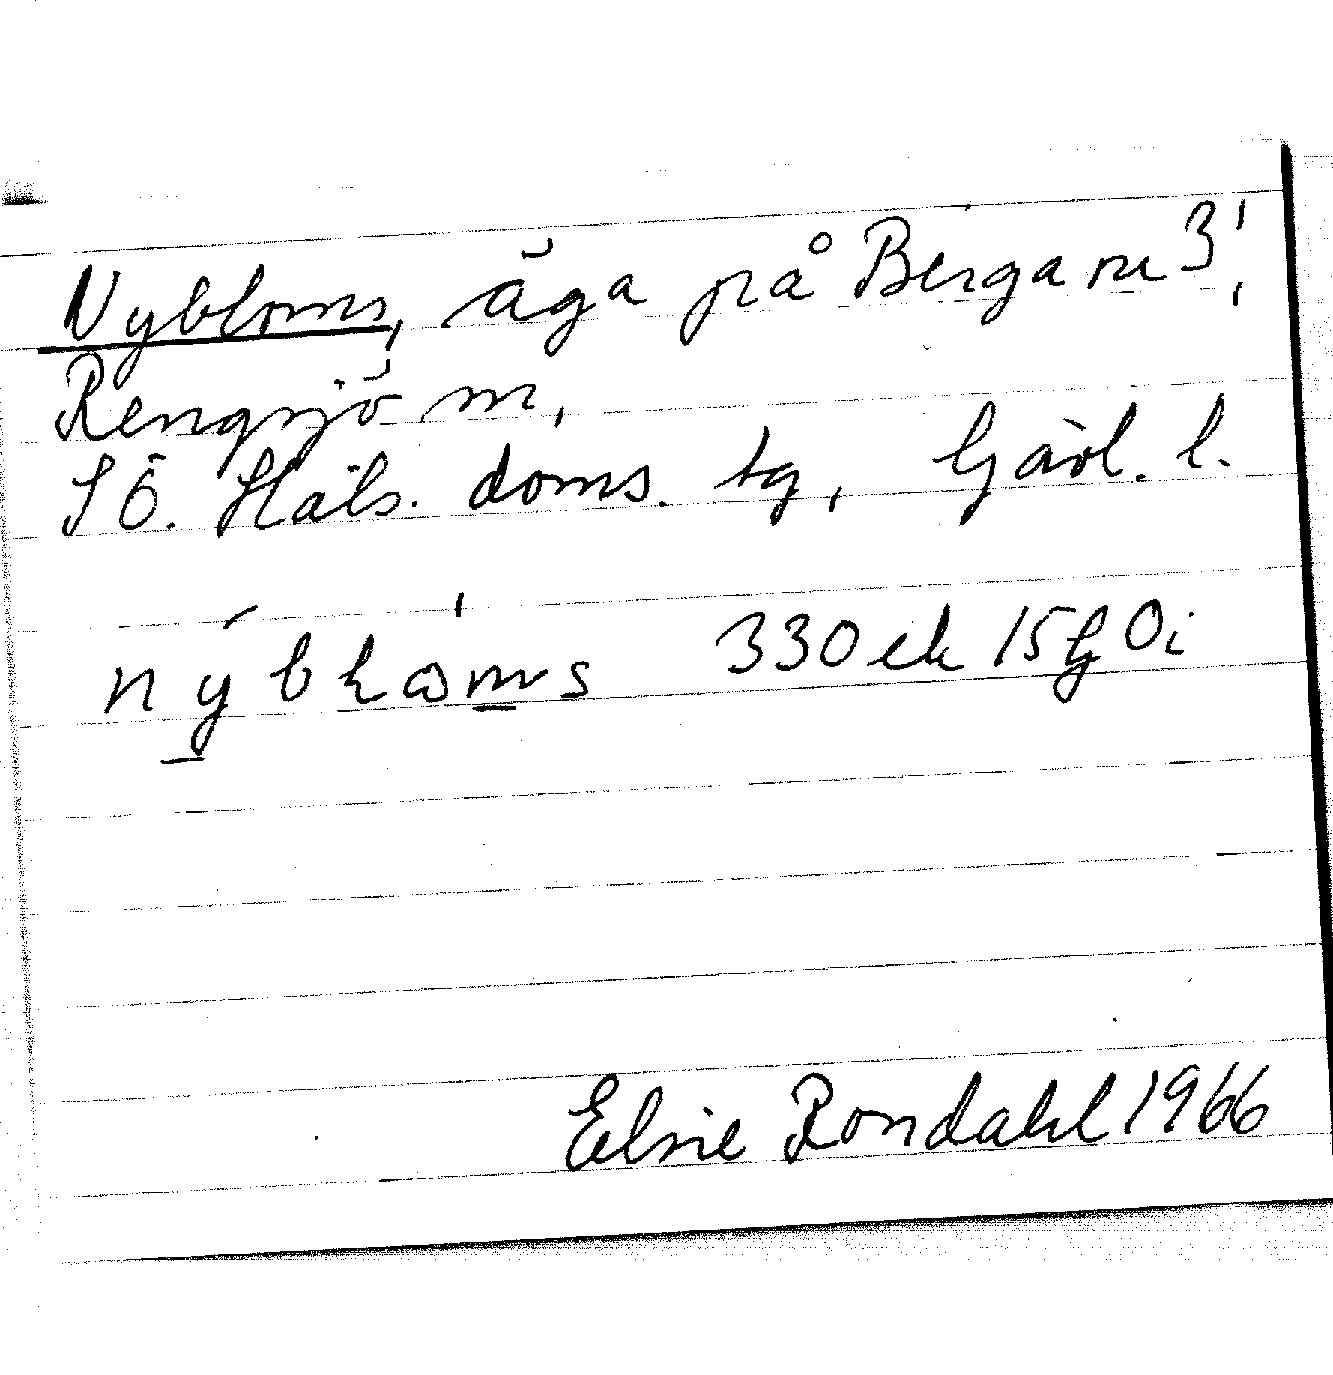 Nybloms, äga på Berga nr 3!,
Rengsjö sn,
SÖ. Häls. doms. tg, Gävl. l.
330 ek 15f 0i
Elsie Rondahl 1966